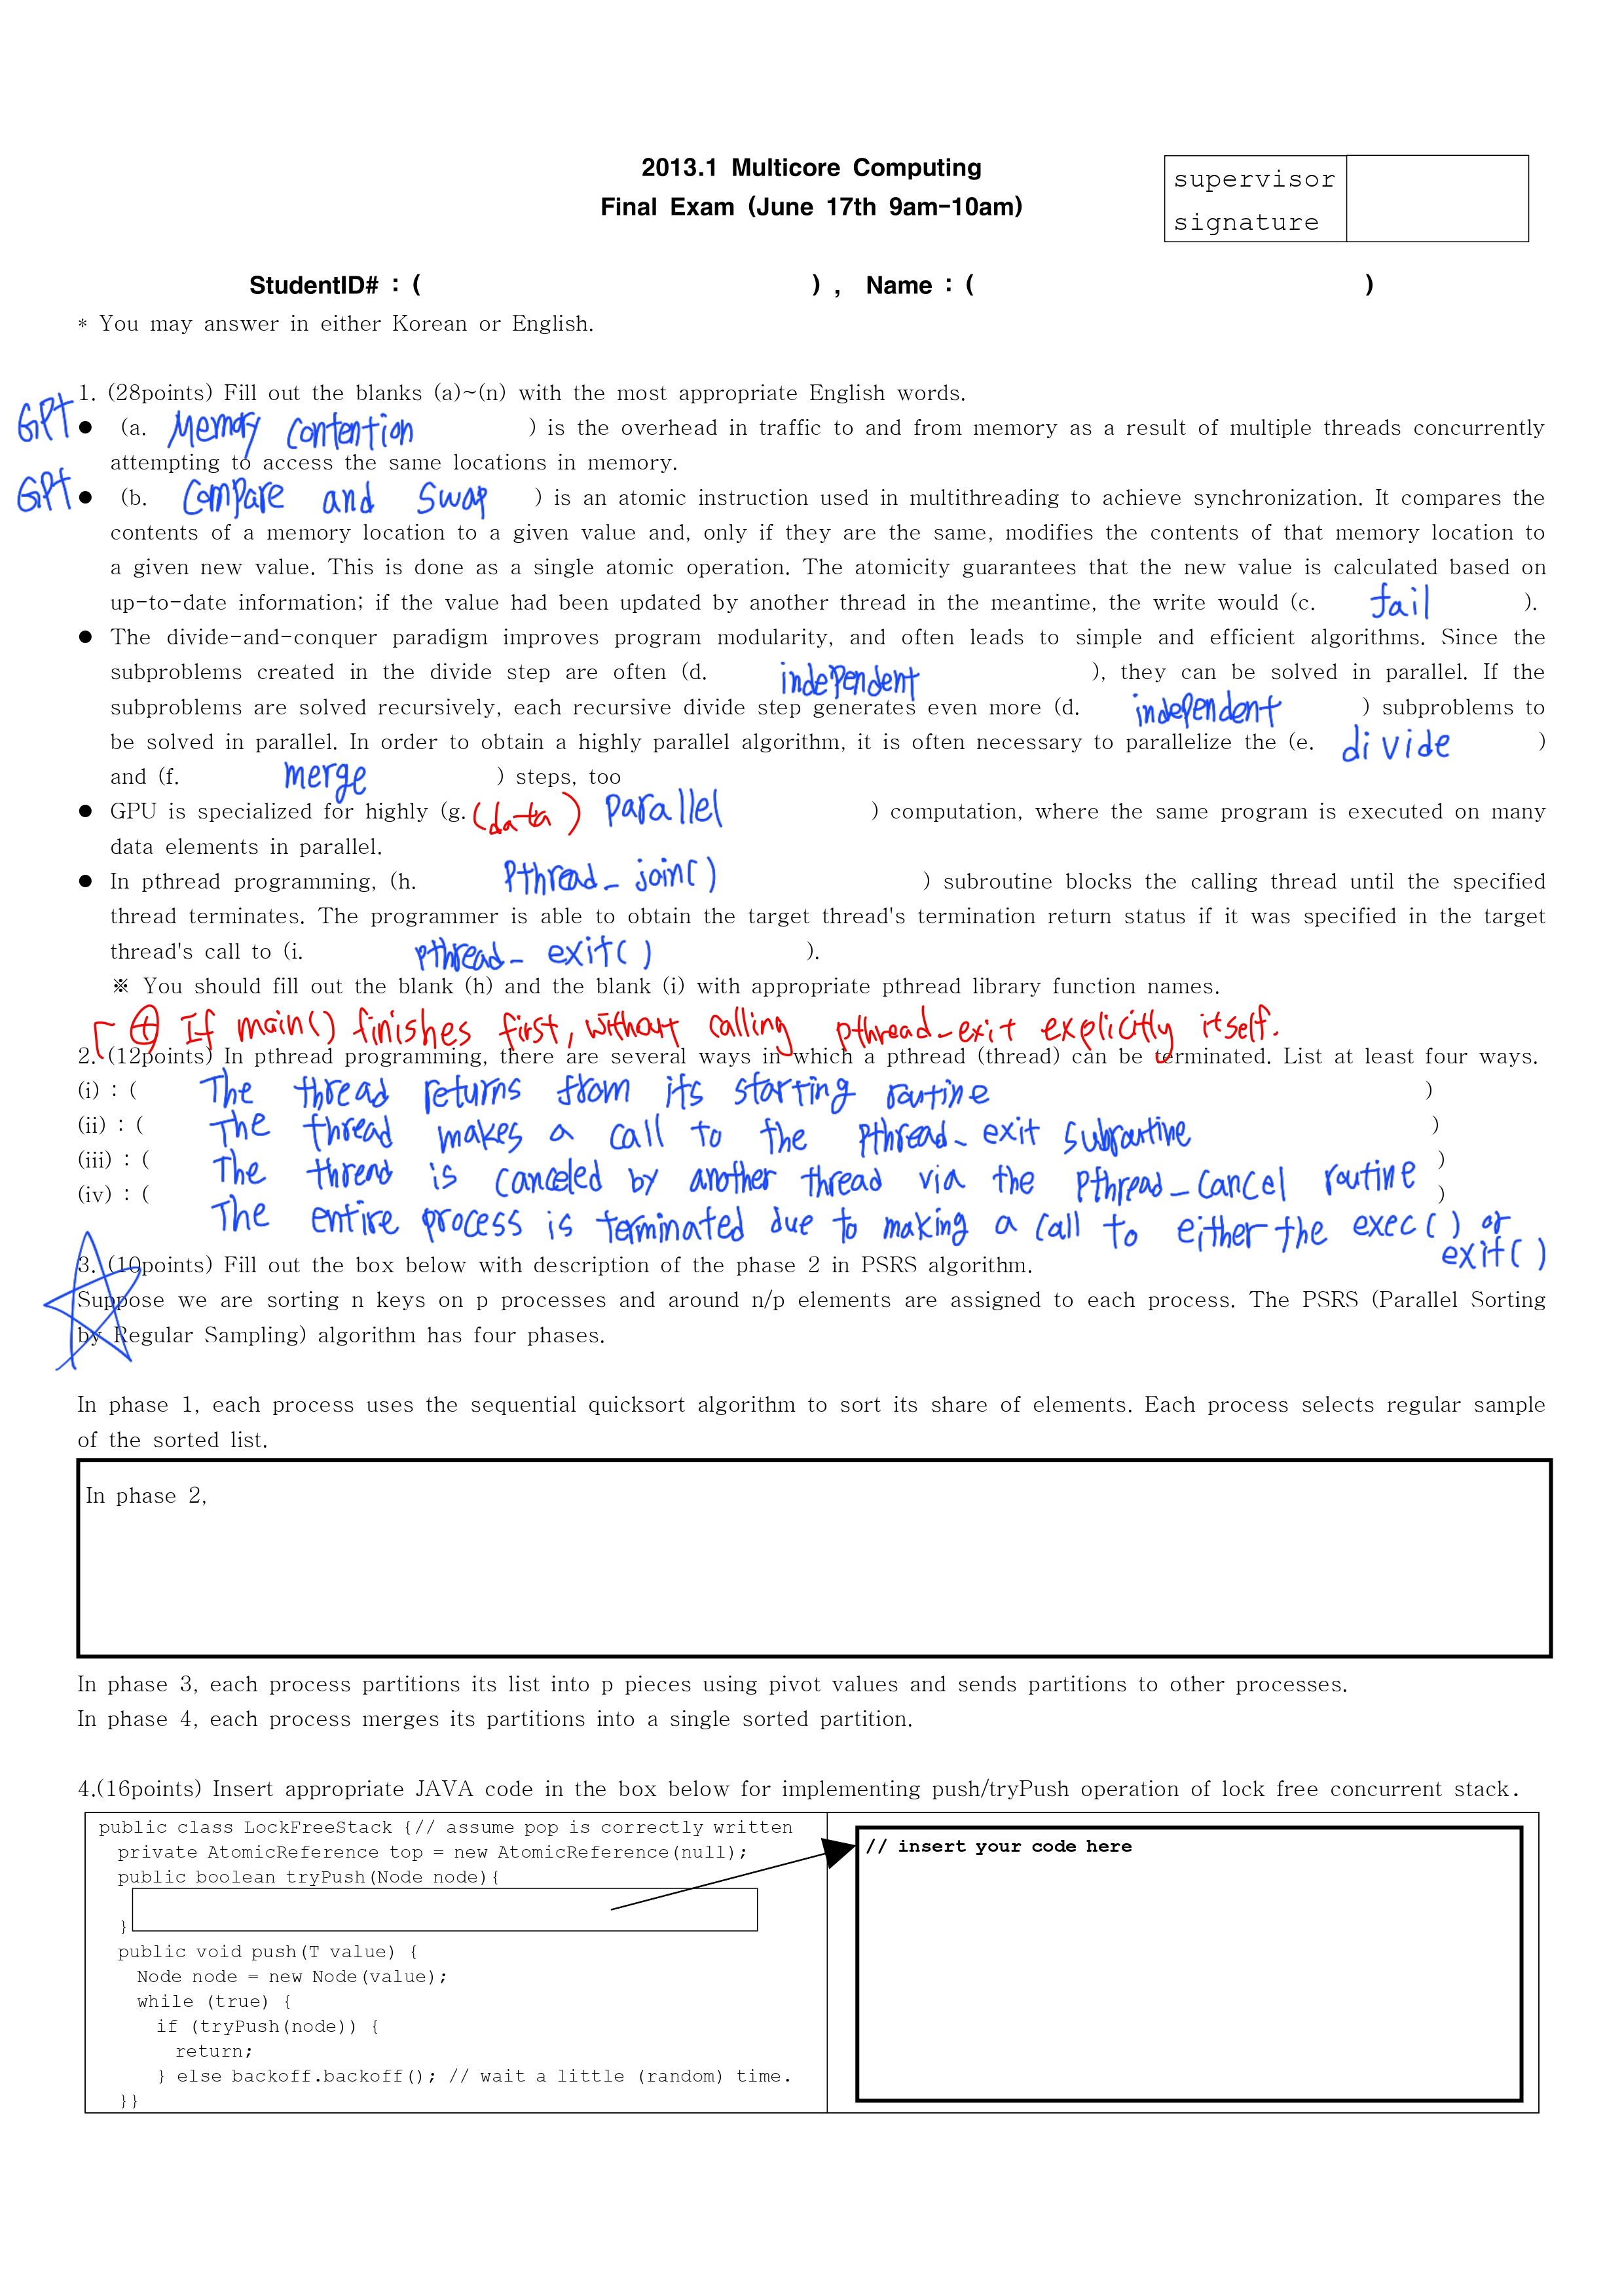 2013.1 Multicore Computing
Final Exam (June 17th 9am-10am)
supervisor
signature
StudentID# : ( ) , Name : ( )
* You may answer in either Korean or English.
1. (28points) Fill out the blanks (a)~(n) with the most appropriate English words.
GPT ● (a. Memory Contention ) is the overhead in traffic to and from memory as a result of multiple threads concurrently
attempting to access the same locations in memory.
GPT ● (b. Compare and Swap ) is an atomic instruction used in multithreading to achieve synchronization. It compares the
contents of a memory location to a given value and, only if they are the same, modifies the contents of that memory location to
a given new value. This is done as a single atomic operation. The atomicity guarantees that the new value is calculated based on
up-to-date information; if the value had been updated by another thread in the meantime, the write would (c. fail ).
● The divide-and-conquer paradigm improves program modularity, and often leads to simple and efficient algorithms. Since the
subproblems created in the divide step are often (d. independent ), they can be solved in parallel. If the
subproblems are solved recursively, each recursive divide step generates even more (d. independent ) subproblems to
be solved in parallel. In order to obtain a highly parallel algorithm, it is often necessary to parallelize the (e. divide )
and (f. merge ) steps, too
● GPU is specialized for highly (g. (data) parallel ) computation, where the same program is executed on many
data elements in parallel.
● In pthread programming, (h. Pthread_join() ) subroutine blocks the calling thread until the specified
thread terminates. The programmer is able to obtain the target thread's termination return status if it was specified in the target
thread's call to (i. pthread_exit() ).
※ You should fill out the blank (h) and the blank (i) with appropriate pthread library function names.
⊕ If main() finishes first, without calling pthread_exit explicitly itself.
2. (12points) In pthread programming, there are several ways in which a pthread (thread) can be terminated. List at least four ways.
(i) : ( The thread returns from its starting routine )
(ii) : ( The thread makes a call to the pthread_exit subroutine )
(iii) : ( The thread is canceled by another thread via the pthread_cancel routine )
(iv) : ( The entire process is terminated due to making a call to either the exec() or )
exit()
3. (10points) Fill out the box below with description of the phase 2 in PSRS algorithm.
Suppose we are sorting n keys on p processes and around n/p elements are assigned to each process. The PSRS (Parallel Sorting
by Regular Sampling) algorithm has four phases.
In phase 1, each process uses the sequential quicksort algorithm to sort its share of elements. Each process selects regular sample
of the sorted list.
In phase 2,
In phase 3, each process partitions its list into p pieces using pivot values and sends partitions to other processes.
In phase 4, each process merges its partitions into a single sorted partition.
4.(16points) Insert appropriate JAVA code in the box below for implementing push/tryPush operation of lock free concurrent stack.
public class LockFreeStack {// assume pop is correctly written
private AtomicReference top = new AtomicReference(null);
public boolean tryPush(Node node){
}
public void push(T value) {
Node node = new Node(value);
while (true) {
if (tryPush(node)) {
return;
} else backoff.backoff(); // wait a little (random) time.
}}
// insert your code here